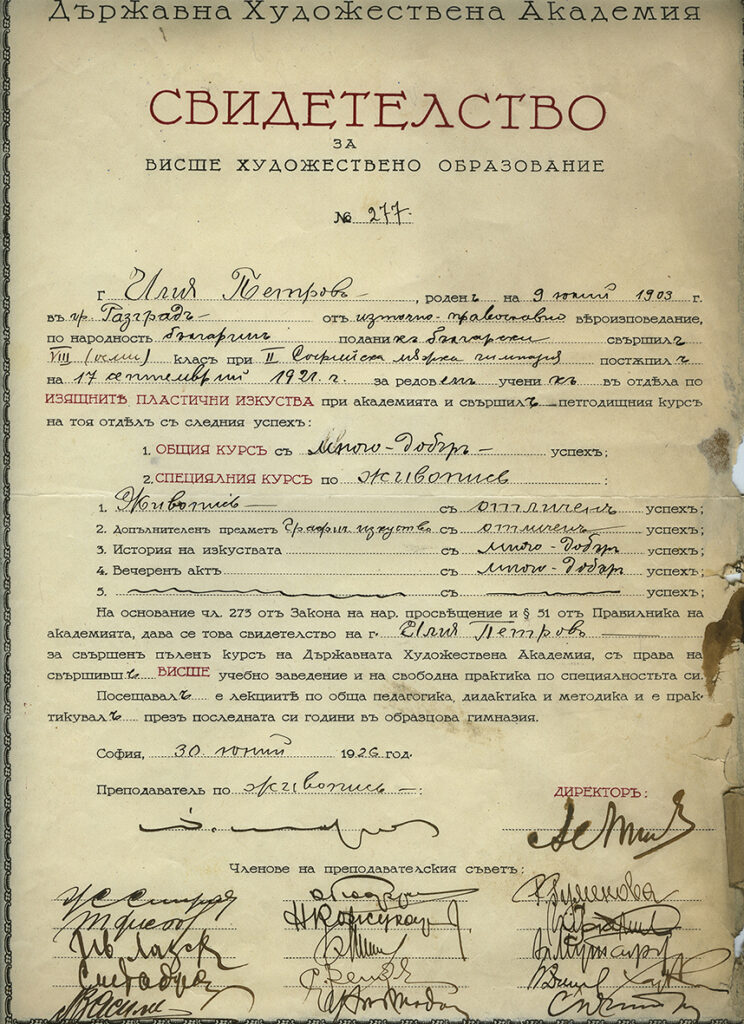 Държавна Художествена Академия
СВИДЕТЕЛСТВО
ЗА
ВИСШЕ ХУДОЖЕСТВЕНО ОБРАЗОВАНИЕ
№ 277.
Г Илия Петровъ, роденъ на 9 юний 1903 г.
въ гр. Разградъ отъ източно-православно вѣроизповедание,
по народность българинъ поданикъ български свършилъ
VIII (осми) класъ при II Софийска мѫжка гимназия постѫпилъ
на 17 септемврий 1921. г. за редовенъ ученикъ въ отдѣла по
ИЗЯЩНИТѢ ПЛАСТИЧНИ ИЗКУСТВА при академията и свършилъ петгодишния курсъ
на тоя отдѣлъ съ следния успехъ:
1. ОБЩИЯ КУРСЪ съ много-добъръ успехъ;
2. СПЕЦИАЛНИЯ КУРСЪ по живопись :
1. Живопись съ отличенъ успехъ;
2. Допълнителенъ предметъ Графич. изкуство съ отличенъ успехъ;
3. История на изкуствата съ много-добъръ успехъ;
4. Вечеренъ актъ съ много-добъръ успехъ;
5. съ успехъ;
На основание чл. 273 отъ Закона на нар. просвѣщение и § 51 отъ Правилника на
академията, дава се това свидетелство на г. Илия Петровъ
за свършенъ пъленъ курсъ на Държавната Художествена Академия, съ права на
свършившъ ВИСШЕ учебно заведение и на свободна практика по специялностьта си.
Посещавалъ е лекциитѣ по обща педагогика, дидактика и методика и е прак-
тикувалъ презъ последната си година въ образцова гимназия.
София, 30 юний 1926 год.
Преподаватель по живопись :
ДИРЕКТОРЪ:
Членове на преподавателския съветъ: